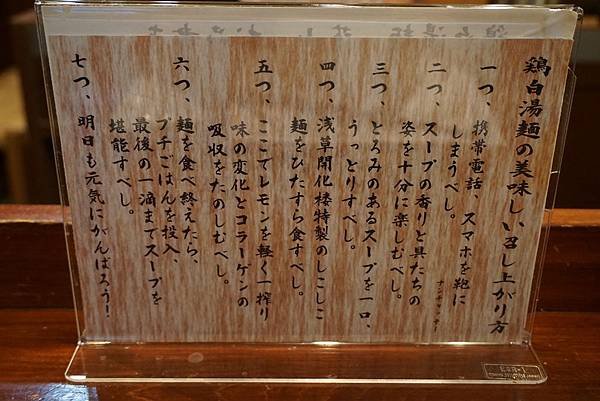 鶏白湯麺の美味しい召し上がり方
一つ、携帯電話、スマホを鞄に
しまうべし。
二つ、スープの香りと具たちの
姿を十分に楽しむべし。
三つ、とろみのあるスープを一口、
うっとりすべし。
四つ、浅草開化楼特製のしこしこ
麺をひたすら食すべし。
五つ、ここでレモンを軽く一搾り
味の変化とコラーゲンの
吸収をたのしむべし。
六つ、麺を食べ終えたら、
プチごはんを投入、
最後の一滴までスープを
堪能すべし。
七つ、明日も元気にがんばろう！